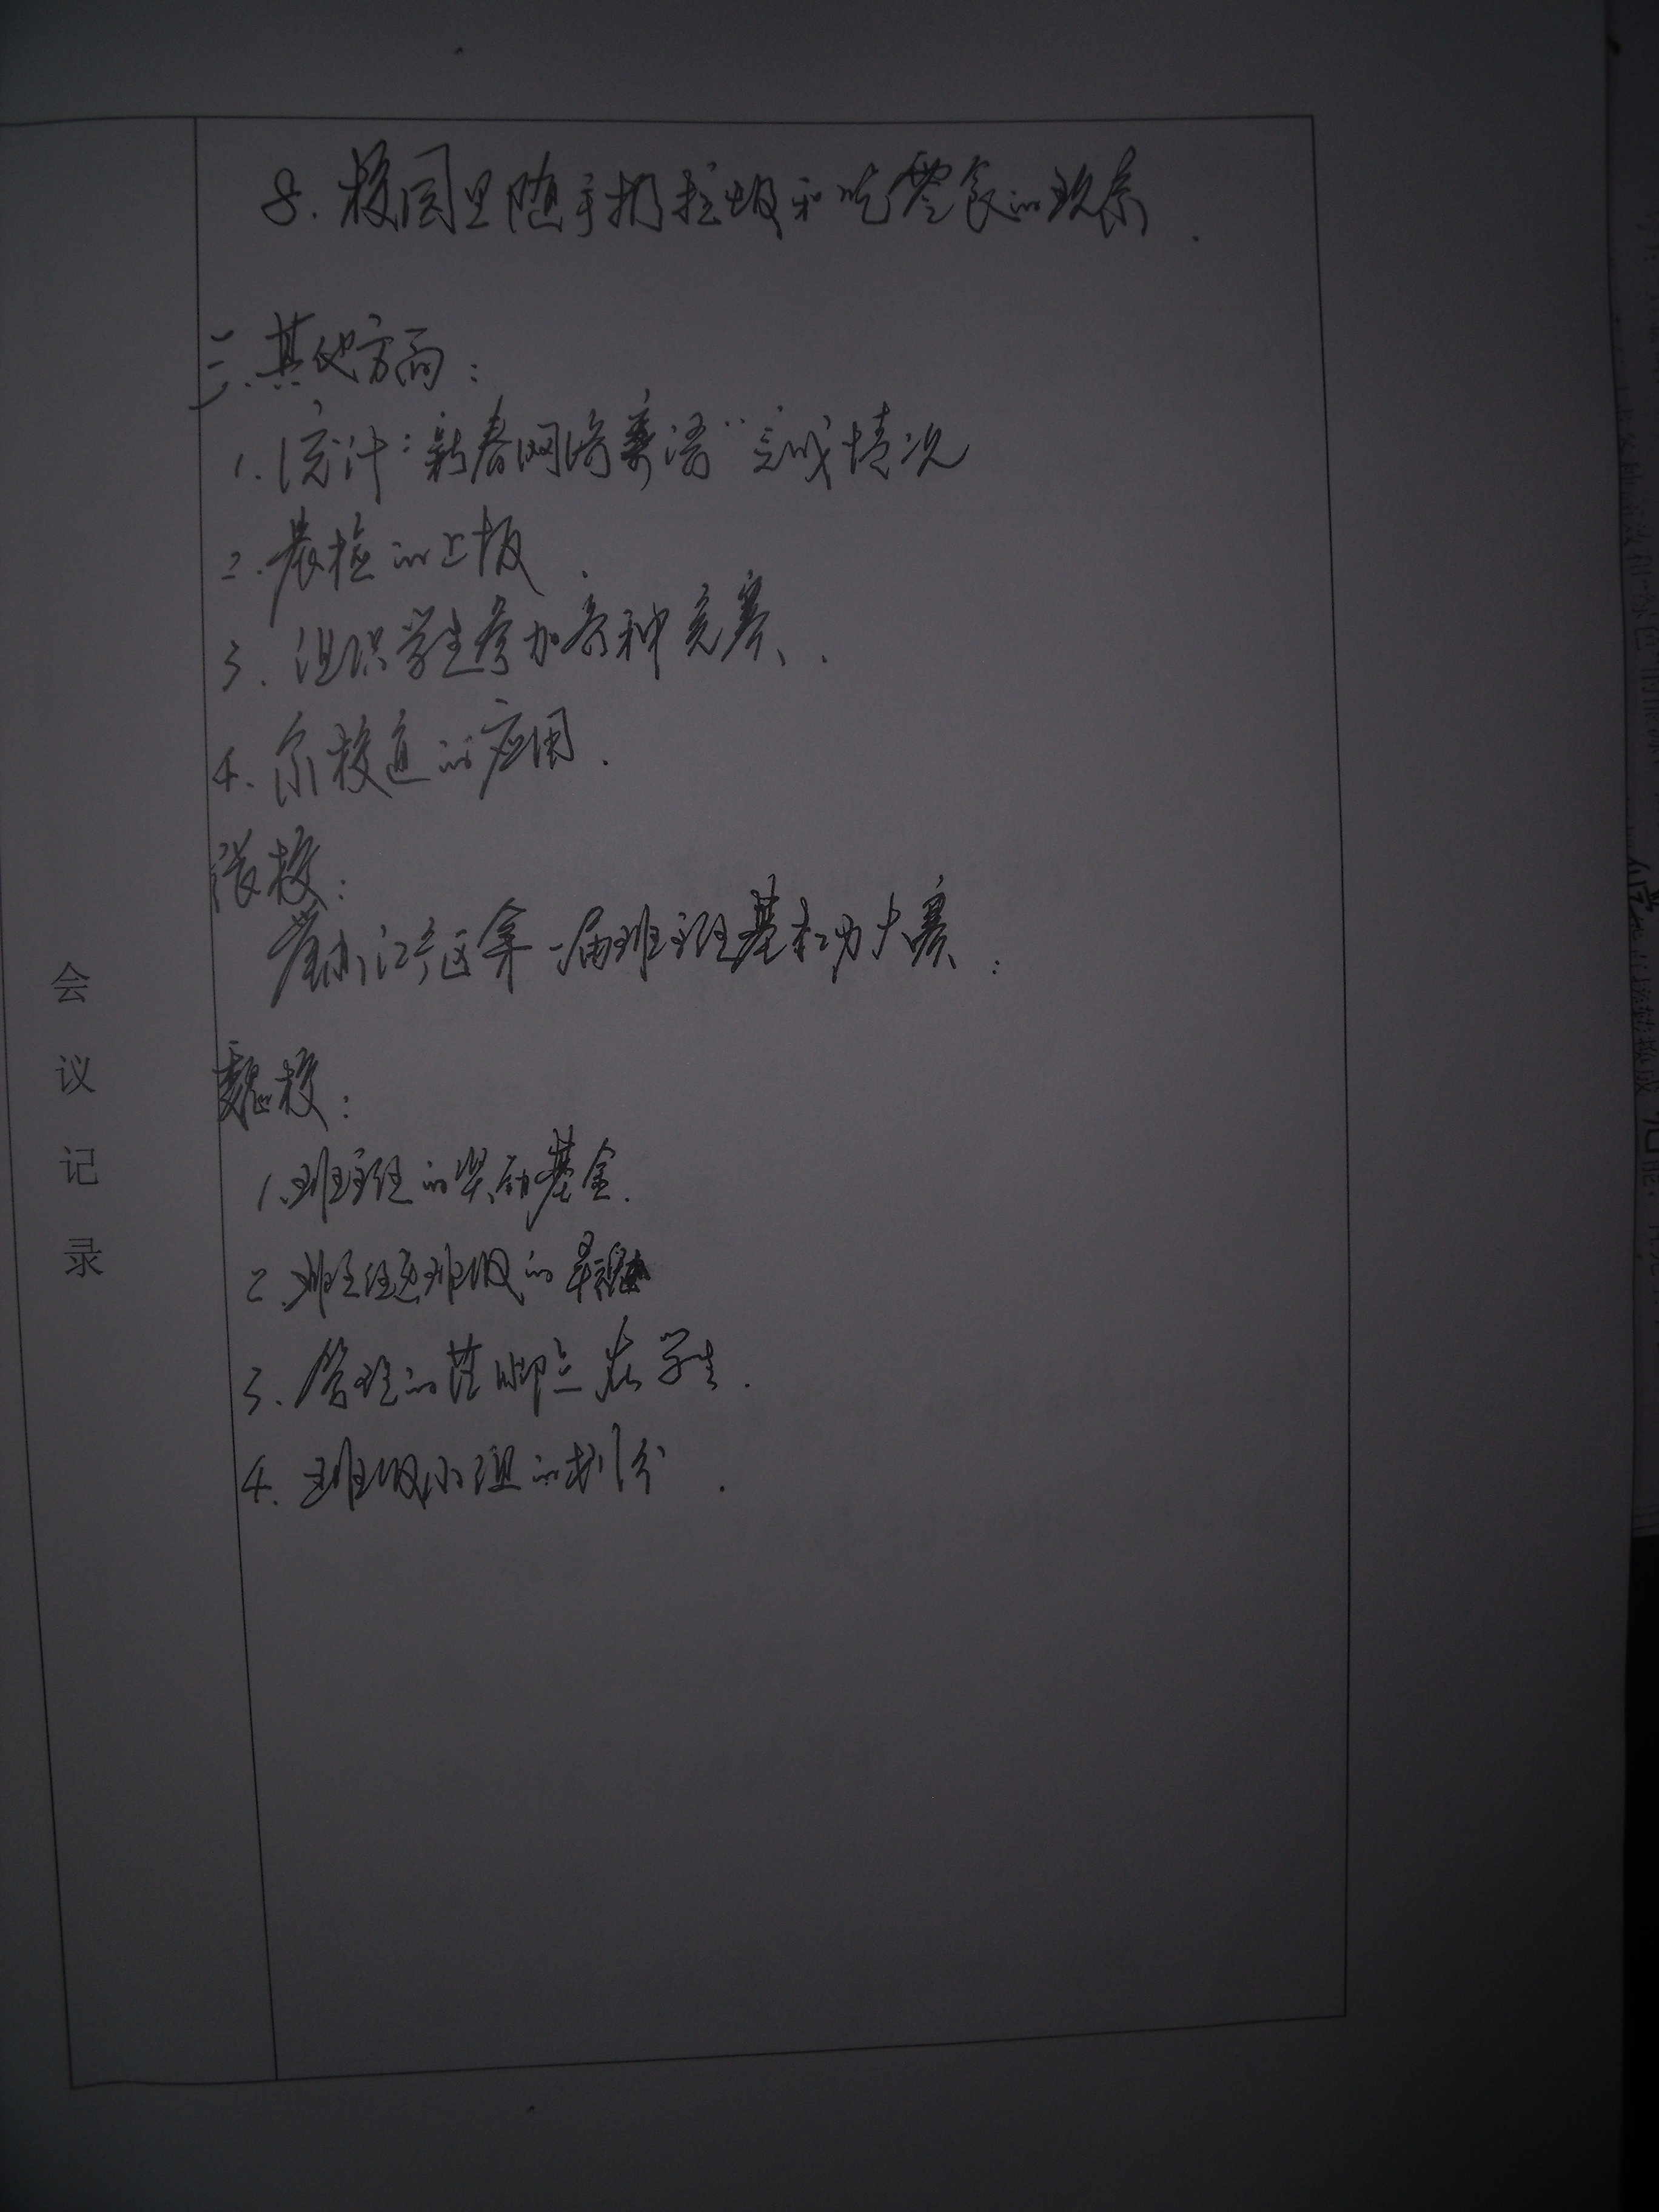 8. 校园里随手扔垃圾和吃零食的现象.
三、其他方面:
1. 统计“新春网络寄语”完成情况
2. 晨检的上报.
3. 组织学生参加各种竞赛.
4. 家校通的应用.
张校:
一届班主任基本功大赛.
魏校:
1. 班主任的奖励基金.
2. 班主任是班级的灵魂
3. 管理的落脚点在学生.
4. 班级小组的划分.
会
议
记
录